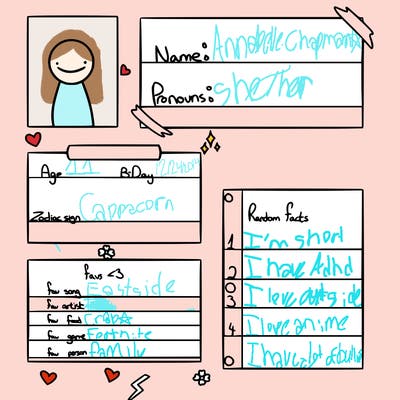 Name: Annabelle Chapman
Pronouns: She/her
Age 11 BiDay 12/24/2014
Zodiac sign Cappacorn
favs <3
fav song Eastside
fav artist
fav food
fav game Fortnite
fav person family
Random facts
1 I'm short
2 I have Adhd
3 I love outside
4 I love anime
I have a lot of bullies